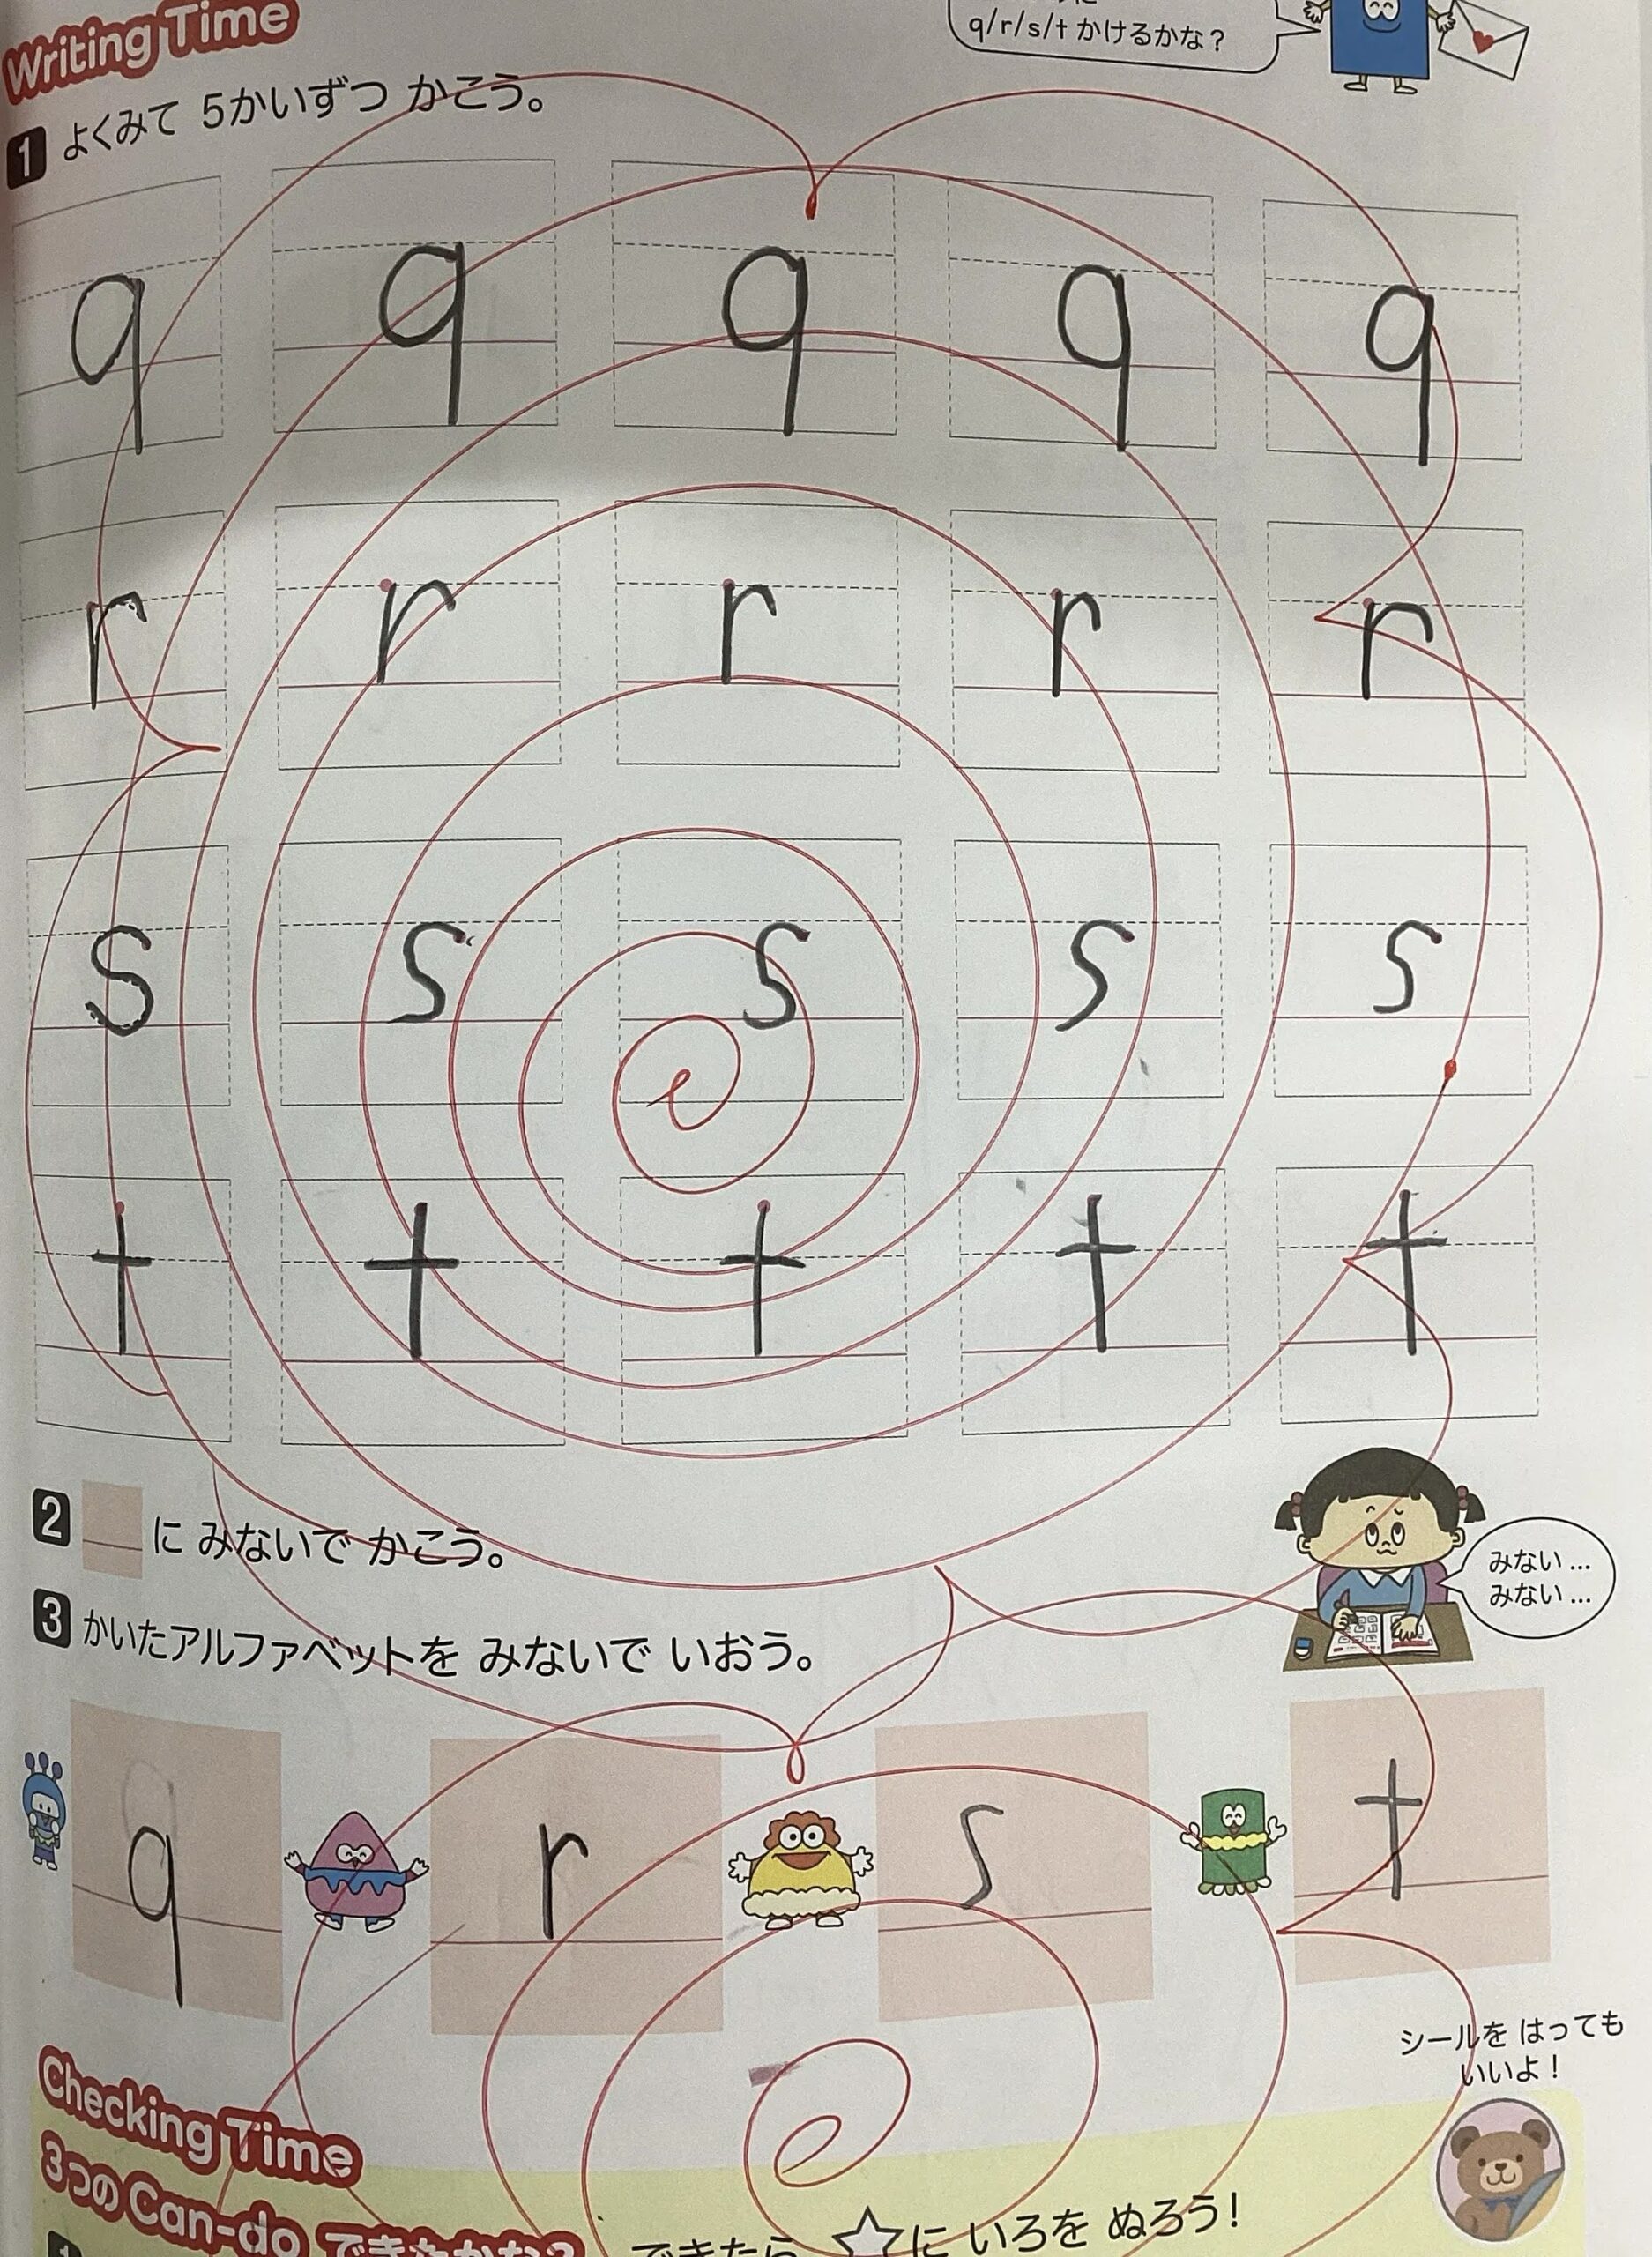 Writing Time
q/r/s/t かけるかな？
1 よくみて 5かいずつ かこう。
q q q q q
r r r r r
s s s s s
t t t t t
2 に みないで かこう。
3 かいたアルファベットを みないで いおう。
みない…
みない…
q r s t
シールを はっても
いいよ！
Checking Time
3つの Can-do できたかな？
できたら ☆に いろを ぬろう！